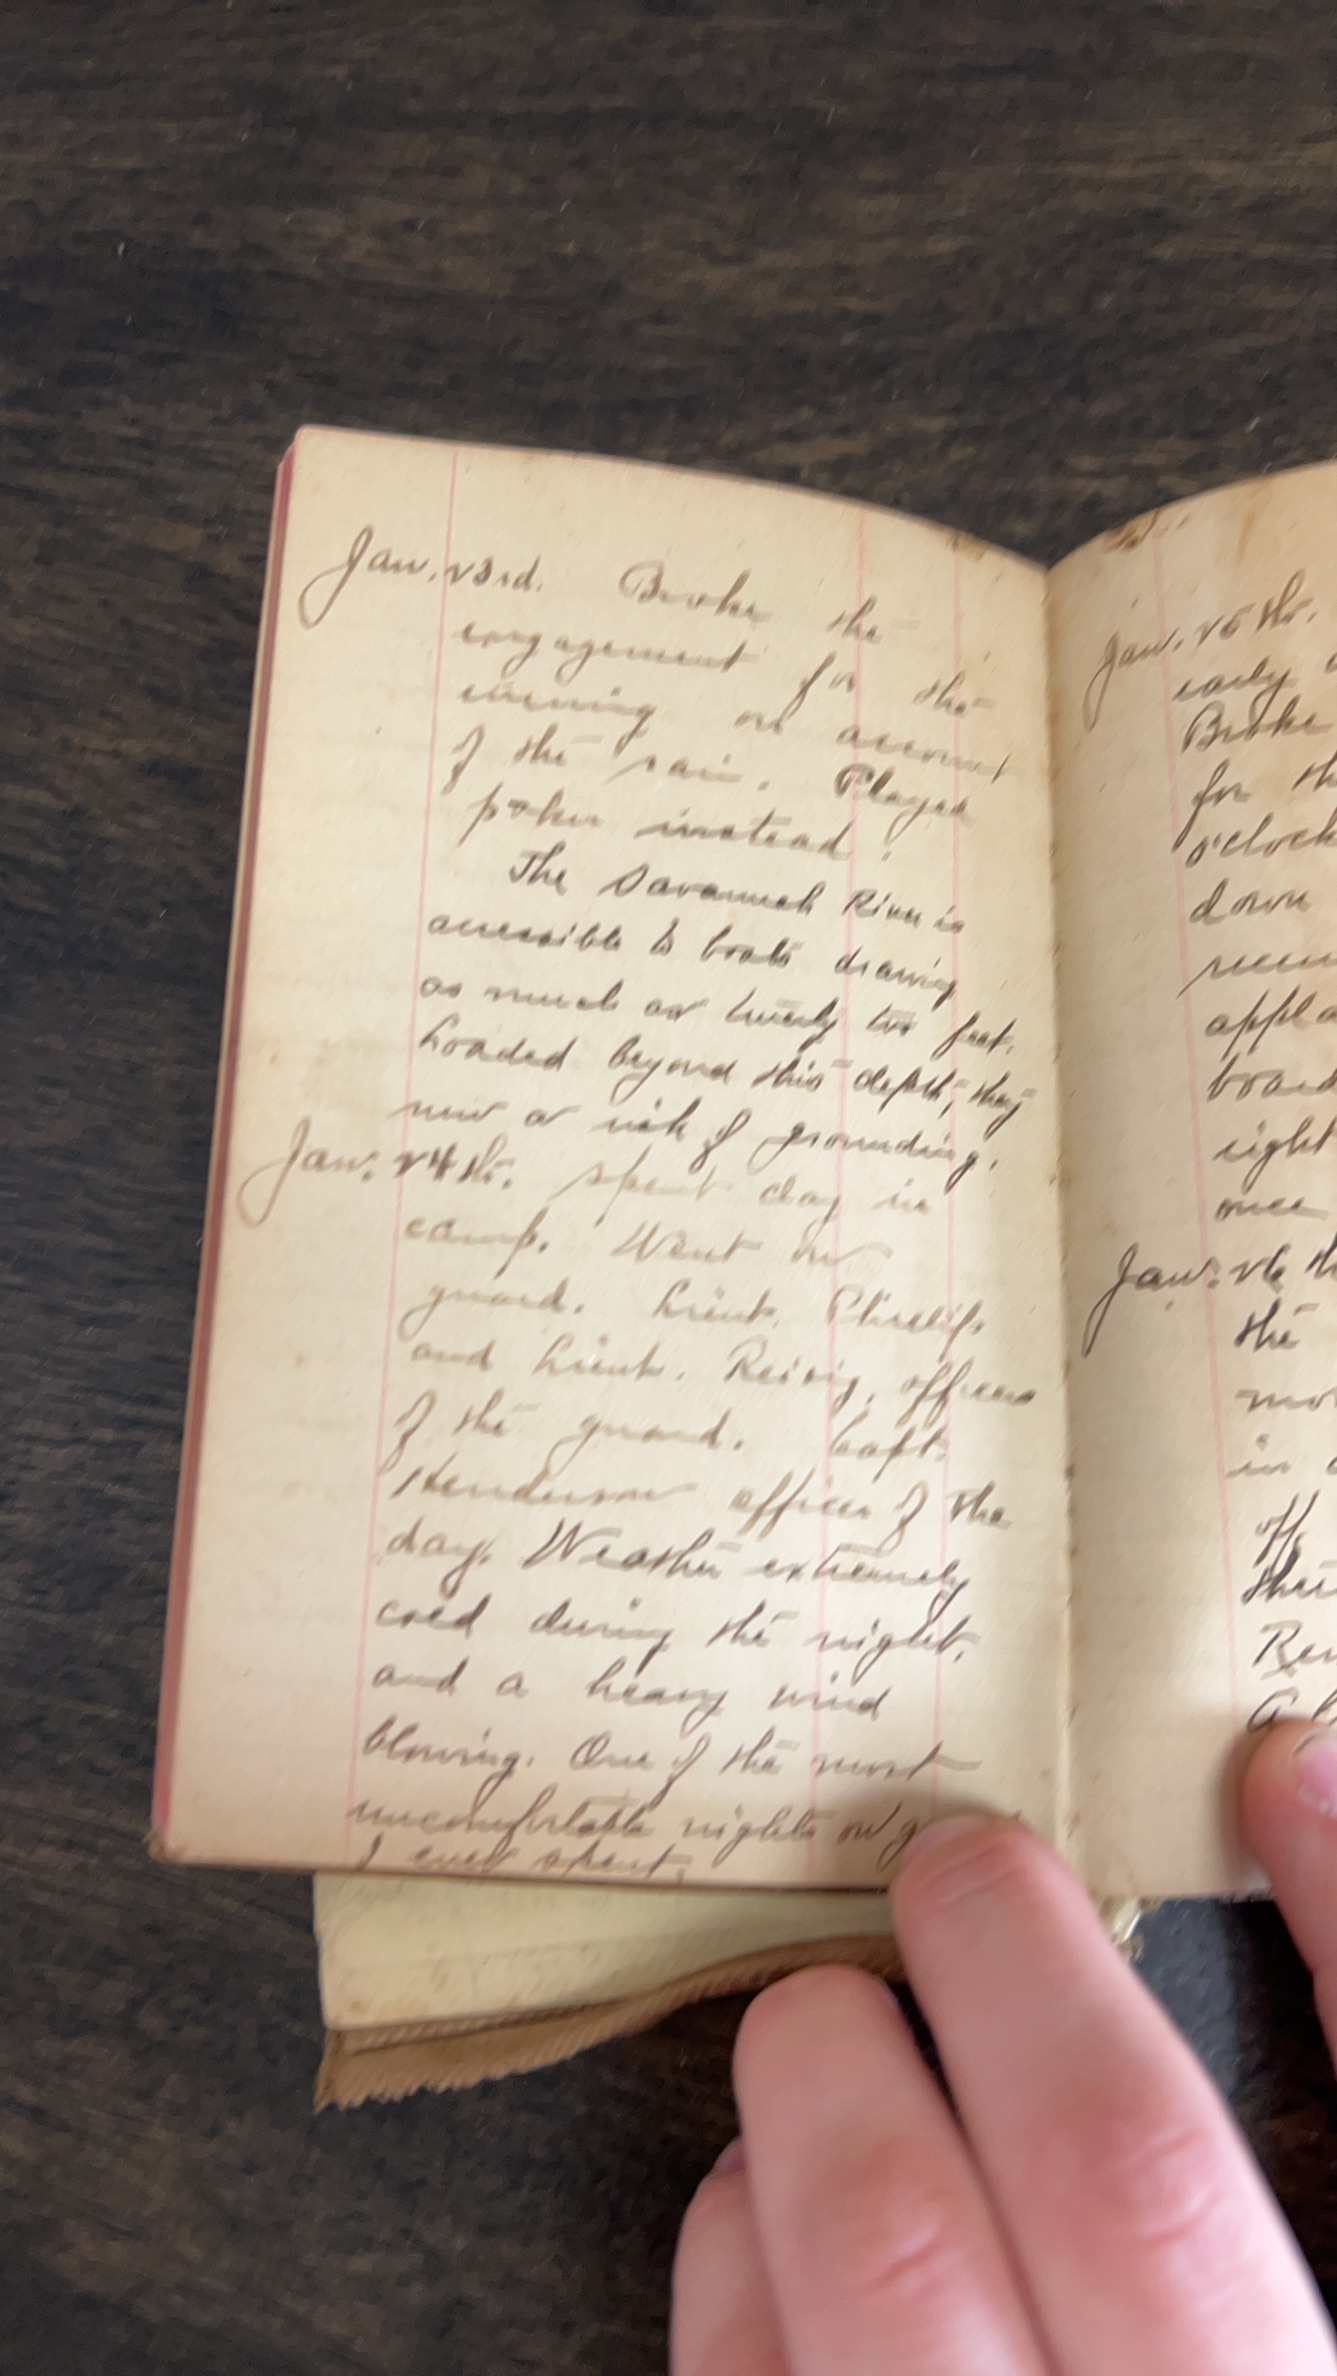 Jan. 23rd. Broke the
engagement for the
evening on account
of the rain. Played
poker instead.
The Savannah River is
accessible to boats drawing
as much as twenty two feet.
Loaded beyond this depth, they
run a risk of grounding.
Jan. 24th. Spent day in
camp. Went on
guard. Lieut. Phillip.
and Lieut. Reisig, officers
of the guard. Capt.
Henderson officer of the
day. Weather extremely
cold during the night,
and a heavy wind
blowing. One of the most
uncomfortable nights on
I ever spent.
Jan. 25th.
early
Broke
for
o'clock
down
right
once
Jan. 26
the
in
off.